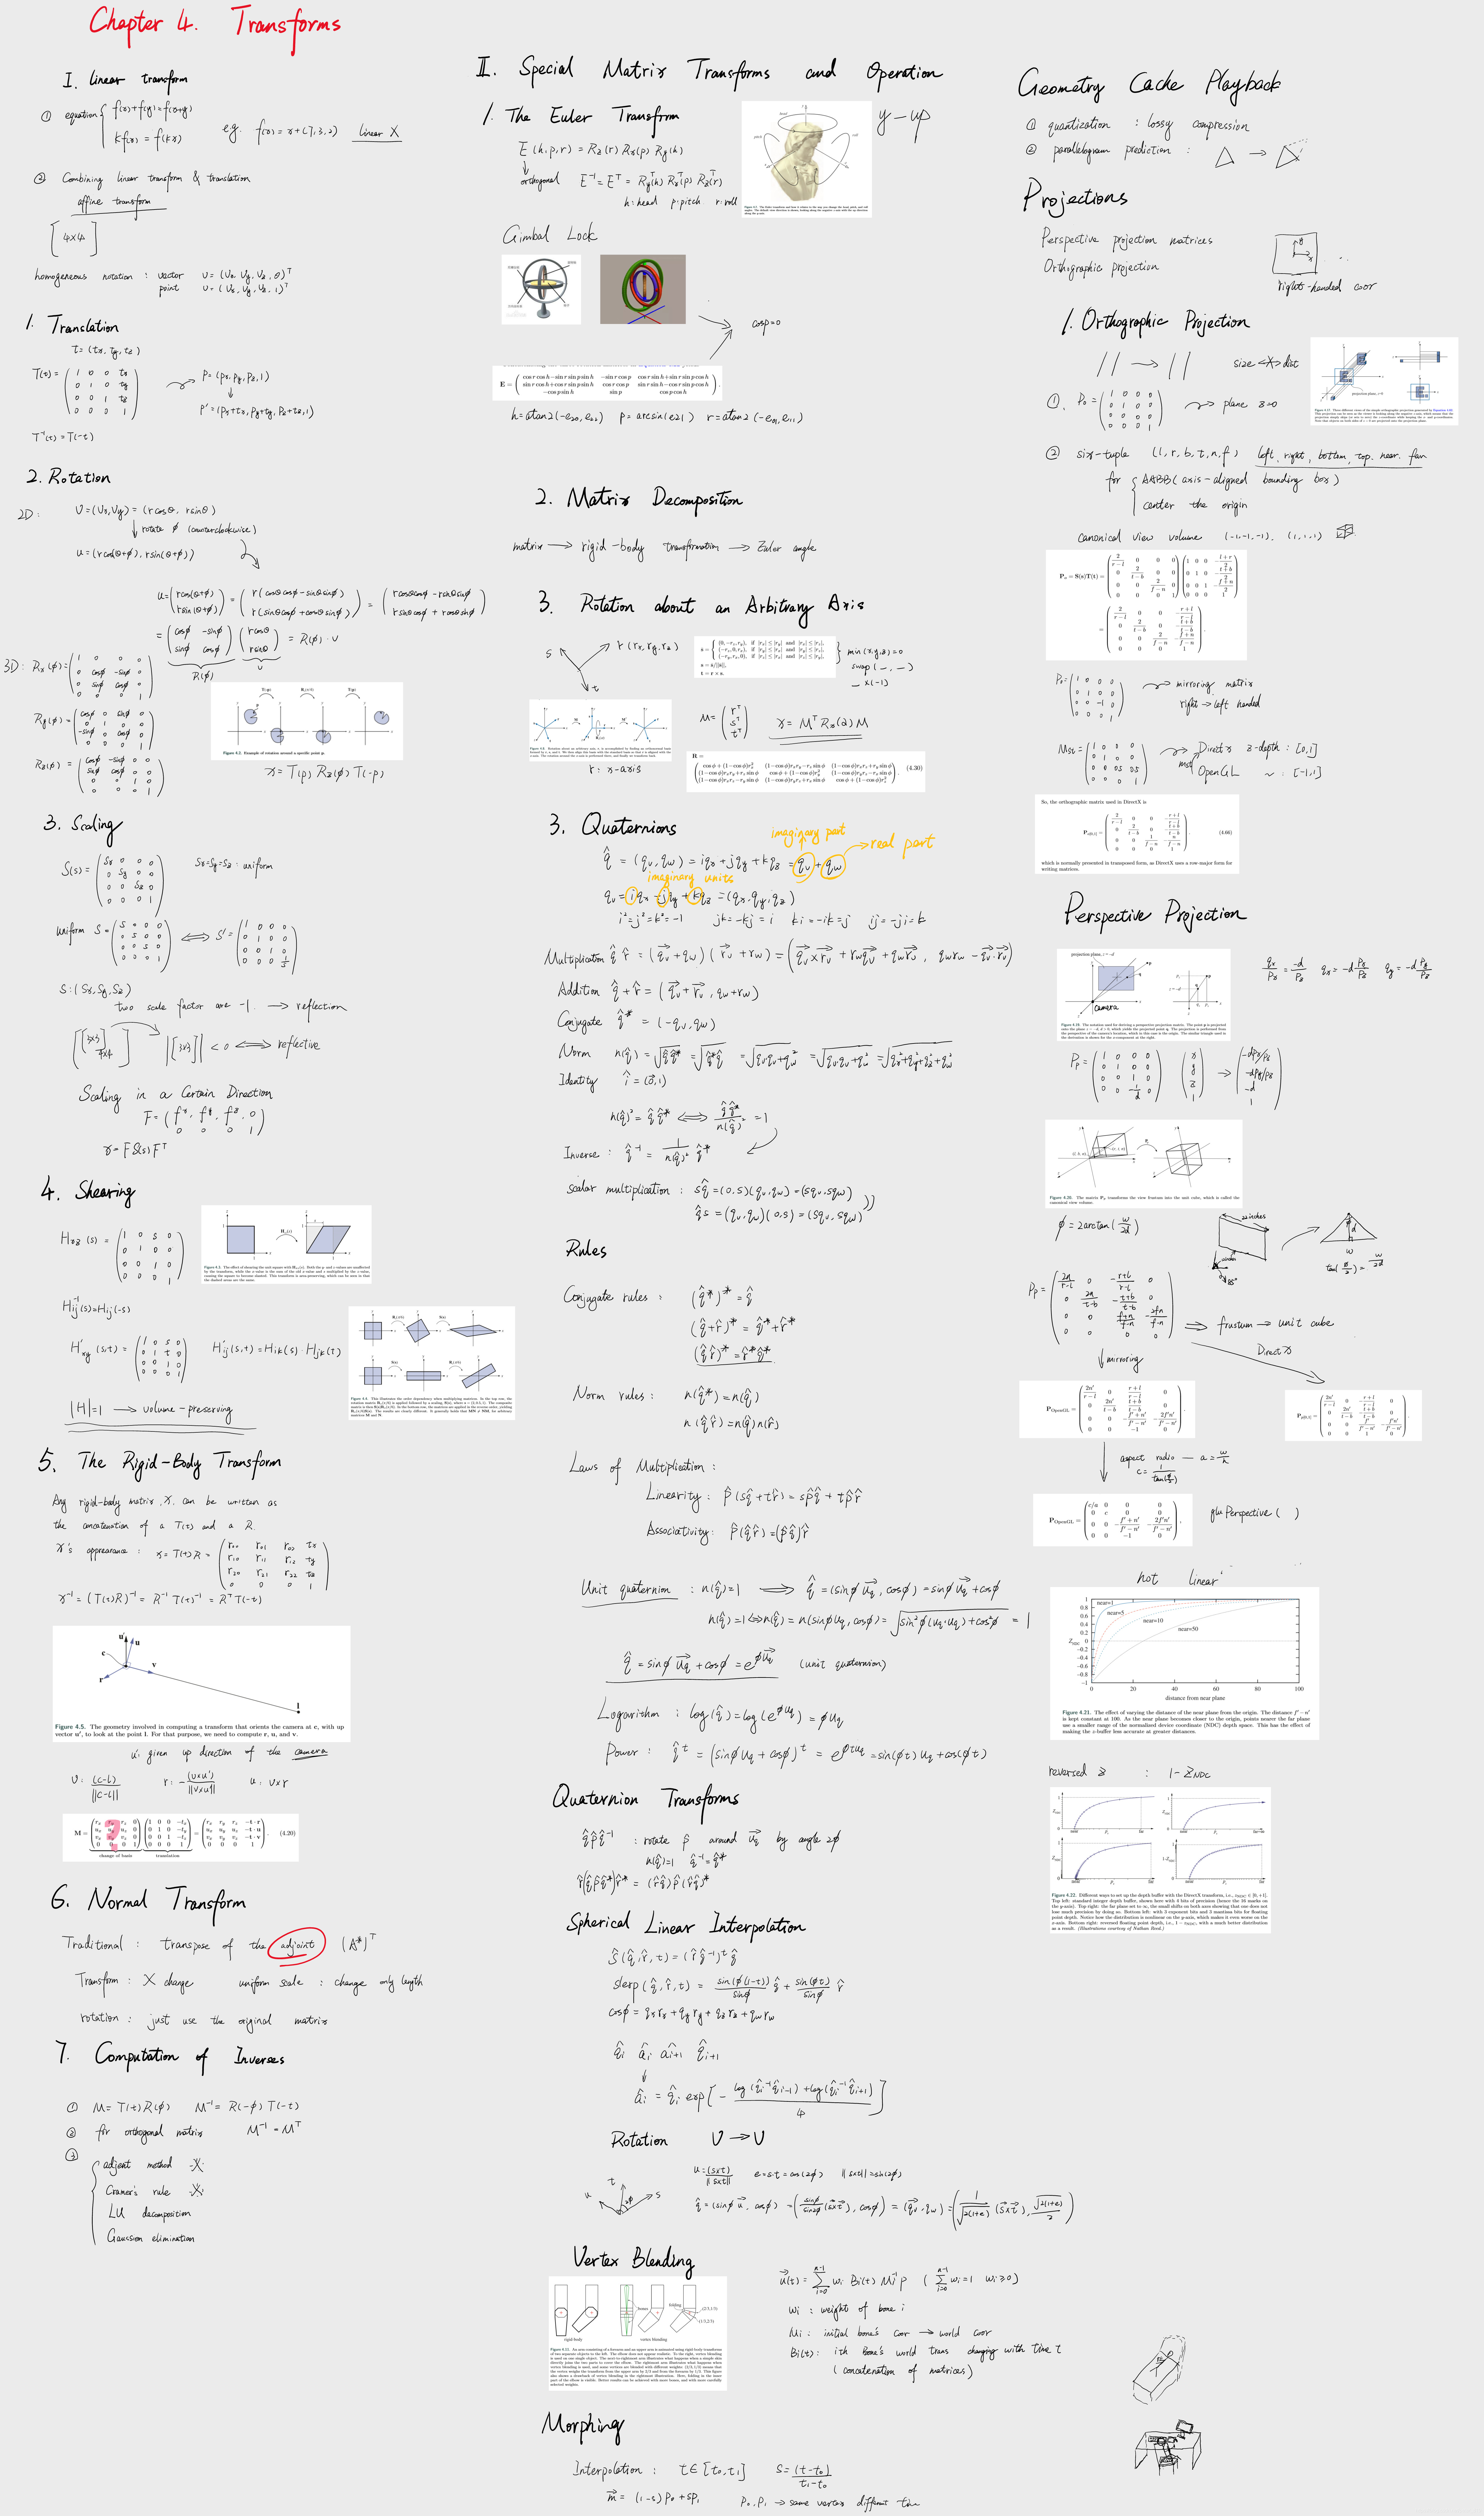 Chapter 4. Transforms
I. linear transform
① equation { f(x)+f(y)=f(x+y)
kf(x) = f(kx)
eg. f(x) = x+(7,3,2) linear X
② Combining linear transform & translation
affine transform
[4×4]
homogeneous notation : vector v = (Vx, Vy, Vz, 0)ᵀ
point v = (Vx, Vy, Vz, 1)ᵀ
1. Translation
t = (tx, ty, tz)
T(t) = ( 1 0 0 tx
0 1 0 ty
0 0 1 tz
0 0 0 1 )
P = (Px, Py, Pz, 1)
P' = (Px+tx, Py+ty, Pz+tz, 1)
T⁻¹(t) = T(-t)
2. Rotation
2D: V = (Vx, Vy) = (r cosθ, r sinθ)
rotate φ (counterclockwise)
u = (r cos(θ+φ), r sin(θ+φ))
u = ( r cos(θ+φ) r sin(θ+φ) ) = ( r(cosθcosφ - sinθsinφ) r(sinθcosφ + cosθsinφ) ) = ( r cosθcosφ - r sinθsinφ r sinθcosφ + r cosθsinφ )
= ( cosφ -sinφ sinφ cosφ ) ( r cosθ r sinθ ) = R(φ) · v
R(φ) v
3D: Rx(φ) = ( 1 0 0 0
0 cosφ -sinφ 0
0 sinφ cosφ 0
0 0 0 1 )
Ry(φ) = ( cosφ 0 sinφ 0
0 1 0 0
-sinφ 0 cosφ 0
0 0 0 1 )
Rz(φ) = ( cosφ -sinφ 0 0
sinφ cosφ 0 0
0 0 1 0
0 0 0 1 )
Figure 4.2. Example of rotation around a specific point p.
X = T(p) Rz(φ) T(-p)
3. Scaling
S(s) = ( Sx 0 0 0
0 Sy 0 0
0 0 Sz 0
0 0 0 1 )
Sx=Sy=Sz : uniform
uniform S = ( S 0 0 0
0 S 0 0
0 0 S 0
0 0 0 1 ) ⟺ S' = ( 1 0 0 0
0 1 0 0
0 0 1 0
0 0 0 1/S )
S : (Sx, Sy, Sz)
two scale factor are -1. → reflection
[[3×3] 4×4] |[3×3]| < 0 ⟺ reflective
Scaling in a Certain Direction
F = ( fˣ fʸ fᶻ 0
0 0 0 1 )
X = F S(s) Fᵀ
4. Shearing
Hxz(s) = ( 1 0 s 0
0 1 0 0
0 0 1 0
0 0 0 1 )
Hij⁻¹(s) = Hij(-s)
H'xy(s,t) = ( 1 0 s 0
0 1 t 0
0 0 1 0
0 0 0 1 )
H'ij(s,t) = Hik(s) · Hjk(t)
|H|=1 → volume-preserving
5. The Rigid-Body Transform
Any rigid-body matrix, X, can be written as
the concatenation of a T(t) and a R.
X's apprearance : X = T(t)R = ( r00 r01 r02 tx
r10 r11 r12 ty
r20 r21 r22 tz
0 0 0 1 )
X⁻¹ = (T(t)R)⁻¹ = R⁻¹ T(t)⁻¹ = Rᵀ T(-t)
u' u
c
v
r
l
Figure 4.5. The geometry involved in computing a transform that orients the camera at c, with up
vector u', to look at the point l. For that purpose, we need to compute r, u, and v.
u': given up direction of the camera
V: (c-l)/||c-l|| r: -(v×u')/||v×u'|| u: v×r
M = ( rx ry rz 0 ux uy uz 0 vx vy vz 0 0 0 0 1 ) ( 1 0 0 -tx 0 1 0 -ty 0 0 1 -tz 0 0 0 1 ) = ( rx ry rz -t·r ux uy uz -t·u vx vy vz -t·v 0 0 0 1 ). (4.20)
change of basis translation
?
6. Normal Transform
Traditional : transpose of the adjoint (A*)ᵀ
Transform : X change uniform scale : change only length
rotation : just use the original matrix
7. Computation of Inverses
① M = T(t)R(φ) M⁻¹ = R(-φ) T(-t)
② for orthogonal matrix M⁻¹ = Mᵀ
③ { adjoint method
Cramer's rule
LU decomposition
Gaussion elimination
II. Special Matrix Transforms and Operation
1. The Euler Transform
y-up
E(h,p,r) = Rz(r) Rx(p) Ry(h)
orthogonal E⁻¹ = Eᵀ = Ryᵀ(h) Rxᵀ(p) Rzᵀ(r)
h: head p: pitch r: roll
Gimbal Lock
cosp=0
E = ( cos r cos h − sin r sin p sin h −sin r cos p cos r sin h + sin r sin p cos h
sin r cos h + cos r sin p sin h cos r cos p sin r sin h − cos r sin p cos h
−cos p sin h sin p cos p cos h ).
h = atan2(-e20, e22) p = arcsin(e21) r = atan2(-e01, e11)
2. Matrix Decomposition
matrix → rigid-body transformation → Euler angle
3. Rotation about an Arbitrary Axis
s r (rx, ry, rz)
t
s = { (0, −rz, ry), if |rx| ≤ |ry| and |rx| ≤ |rz|,
(−rz, 0, rx), if |ry| ≤ |rx| and |ry| ≤ |rz|,
(−ry, rx, 0), if |rz| ≤ |rx| and |rz| ≤ |ry|,
s = s/||s||,
t = r × s.
min(x,y,z)=0
swap(_, _)
_ x(-1)
M = ( rᵀ sᵀ tᵀ ) X = Mᵀ Rx(α) M
r: x-axis
R =
( cos φ + (1−cos φ)rx² (1−cos φ)rxry − rz sin φ (1−cos φ)rxrz + ry sin φ
(1−cos φ)rxry + rz sin φ cos φ + (1−cos φ)ry² (1−cos φ)ryrz − rx sin φ
(1−cos φ)rxrz − ry sin φ (1−cos φ)ryrz + rx sin φ cos φ + (1−cos φ)rz² ) (4.30)
3. Quaternions
imaginary part
real part
q̂ = (qv, qw) = iqx + jqy + kqz = qv + qw
imaginary units
qv = iqx + jqy + kqz = (qx, qy, qz)
i²=j²=k²=-1 jk=-kj=i ki=-ik=j ij=-ji=k
Multiplication q̂ r̂ = (qv + qw)(rv + rw) = (qv×rv + rwqv + qwrv, qwrw - qv·rv)
Addition q̂ + r̂ = (qv + rv, qw+rw)
Conjugate q̂* = (-qv, qw)
Norm n(q̂) = √q̂q̂* = √q̂*q̂ = √qv·qv+qw² = √qv·qv+qw² = √qx²+qy²+qz²+qw²
Identity î = (0, 1)
n(q̂)² = q̂ q̂* ⟺ q̂ q̂*/n(q̂)² = 1
Inverse : q̂⁻¹ = 1/n(q̂)² q̂*
scalar multiplication : sq̂ = (0,s)(qv,qw) = (sqv, sqw)
q̂s = (qv,qw)(0,s) = (sqv, sqw)
Rules
Conjugate rules : (q̂*)* = q̂
(q̂+r̂)* = q̂* + r̂*
(q̂r̂)* = r̂*q̂*
Norm rules : n(q̂*) = n(q̂)
n(q̂r̂) = n(q̂)n(r̂)
Laws of Multiplication :
Linearity : p̂(sq̂+tr̂) = sp̂q̂ + tp̂r̂
Associativity : p̂(q̂r̂) = (p̂q̂)r̂
Unit quaternion : n(q̂)=1 ⟹ q̂ = (sinφ uq, cosφ) = sinφ uq + cosφ
n(q̂)=1 ⟺ n(q̂) = n(sinφuq, cosφ) = √sin²φ(uq·uq)+cos²φ = 1
q̂ = sinφ uq + cosφ = e^φuq (unit quaternion)
Logarithm : log(q̂) = log(e^φuq) = φuq
Power : q̂ᵗ = (sinφuq + cosφ)ᵗ = e^φtuq = sin(φt)uq + cos(φt)
Quaternion Transforms
q̂p̂q̂⁻¹ : rotate p̂ around uq by angle 2φ
n(q̂)=1 q̂⁻¹=q̂*
r̂(q̂p̂q̂*)r̂* = (r̂q̂)p̂(r̂q̂)*
Spherical Linear Interpolation
ŝ(q̂,r̂,t) = (r̂q̂⁻¹)ᵗq̂
slerp(q̂,r̂,t) = sin(φ(1-t))/sinφ q̂ + sin(φt)/sinφ r̂
cosφ = qxrx + qyry + qzrz + qwrw
q̂i âi âi+1 q̂i+1
âi = q̂i exp[ - (log(q̂i⁻¹q̂i-1) + log(q̂i⁻¹q̂i+1))/4 ]
Rotation V → U
u = (s×t)/||s×t|| e = s·t = cos(2φ) ||s×t|| = sin(2φ)
u t 2φ s
q̂ = (sinφ u, cosφ) = (sinφ/sin2φ (s×t), cosφ) = (qv, qw) = (1/√2(1+e) (s×t), √2(1+e)/2)
Vertex Blending
rigid-body
bones
folding
(2/3,1/3)
(1/3,2/3)
vertex blending
u(t) = Σ wi Bi(t) Mi⁻¹ p ( Σ wi=1 wi≥0 )
wi : weight of bone i
Mi : initial bone's coor → world coor
Bi(t): ith bone's world trans changing with time t
( concatenation of matrices )
Morphing
Interpolation : t∈[t0,t1] s = (t-t0)/t1-t0
m = (1-s)p0 + sp1 p0, p1 → same vertex different time
Geometry Cache Playback
① quantization : lossy compression
② parallelogram prediction :
Projections
Perspective projection matrices
Orthographic projection
right-handed coor
1. Orthographic Projection
// → // size <X> dist
①. Po = ( 1 0 0 0
0 1 0 0
0 0 0 0
0 0 0 1 ) plane z=0
② six-tuple (l, r, b, t, n, f) left, right, bottom, top, near, far
for { AABB (axis-aligned bounding box)
center the origin
canonical view volume (-1,-1,-1), (1,1,1)
Po = S(s)T(t) = ( 2/r−l 0 0 0 0 2/t−b 0 0 0 0 2/f−n 0 0 0 0 1 ) ( 1 0 0 −l+r/2 0 1 0 −t+b/2 0 0 1 −f+n/2 0 0 0 1 )
= ( 2/r−l 0 0 −r+l/r−l 0 2/t−b 0 −t+b/t−b 0 0 2/f−n −f+n/f−n 0 0 0 1 )
Po = ( 1 0 0 0
0 1 0 0
0 0 -1 0
0 0 0 1 ) mirroring matrix
right → left handed
Mst = ( 1 0 0 0
0 1 0 0
0 0 0.5 0.5
0 0 0 1 ) DirectX z-depth : [0,1]
Mst OpenGL ~ : [-1,1]
So, the orthographic matrix used in DirectX is
Po[0,1] = ( 2/r−l 0 0 −r+l/r−l 0 2/t−b 0 −t+b/t−b 0 0 1/f−n −n/f−n 0 0 0 1 ). (4.66)
which is normally presented in transposed form, as DirectX uses a row-major form for
writing matrices.
Perspective Projection
projection plane, z = −d
camera
qx/px = -d/pz qx = -d px/pz qy = -d py/pz
Pp = ( 1 0 0 0
0 1 0 0
0 0 1 0
0 0 -1/d 0 ) ( x y z 1 ) → ( -dpx/pz -dpy/pz -d 1 )
Figure 4.20. The matrix Pp transforms the view frustum into the unit cube, which is called the
canonical view volume.
φ = 2arctan(w/2d)
22 inches
85°
φ d w
tan(φ/2) = w/2d
Pp = ( 2n/r-l 0 -r+l/r-l 0
0 2n/t-b -t+b/t-b 0
0 0 f+n/f-n -2fn/f-n
0 0 0 0 ) ⟹ frustum → unit cube
↓ mirroring
DirectX
POpenGL = ( 2n′/r−l 0 r+l/r−l 0 0 2n′/t−b t+b/t−b 0 0 0 −f′+n′/f′−n′ −2f′n′/f′−n′ 0 0 −1 0 ).
Pp[0,1] = ( 2n′/r−l 0 r+l/r−l 0 0 2n′/t−b t+b/t−b 0 0 0 f′/f′−n′ −f′n′/f′−n′ 0 0 1 0 ).
aspect radio — a = w/h
c = 1/tan(φ/2)
POpenGL = ( c/a 0 0 0 0 c 0 0 0 0 −f′+n′/f′−n′ −2f′n′/f′−n′ 0 0 −1 0 ).
gluPerspective( )
not linear
near=1
near=5
near=10
near=50
1
0.8
0.6
0.4
0.2
0
−0.2
−0.4
−0.6
−0.8
−1
ZNDC
0 20 40 60 80 100
distance from near plane
Figure 4.21. The effect of varying the distance of the near plane from the origin. The distance f′ − n′
is kept constant at 100. As the near plane becomes closer to the origin, points nearer the far plane
use a smaller range of the normalized device coordinate (NDC) depth space. This has the effect of
making the z-buffer less accurate at greater distances.
reversed z : 1-ZNDC
Figure 4.22. Different ways to set up the depth buffer with the DirectX transform, i.e., zNDC ∈ [0, +1].
Top left: standard integer depth buffer, shown here with 4 bits of precision (hence the 16 marks on
the y-axis). Top right: the far plane set to ∞, the small shifts on both axes showing that one does not
lose much precision by doing so. Bottom left: with 3 exponent bits and 3 mantissa bits for floating
point depth. Notice how the distribution is nonlinear on the y-axis, which makes it even worse on the
x-axis. Bottom right: reversed floating point depth, i.e., 1 − zNDC, with a much better distribution
as a result. (Illustrations courtesy of Nathan Reed.)